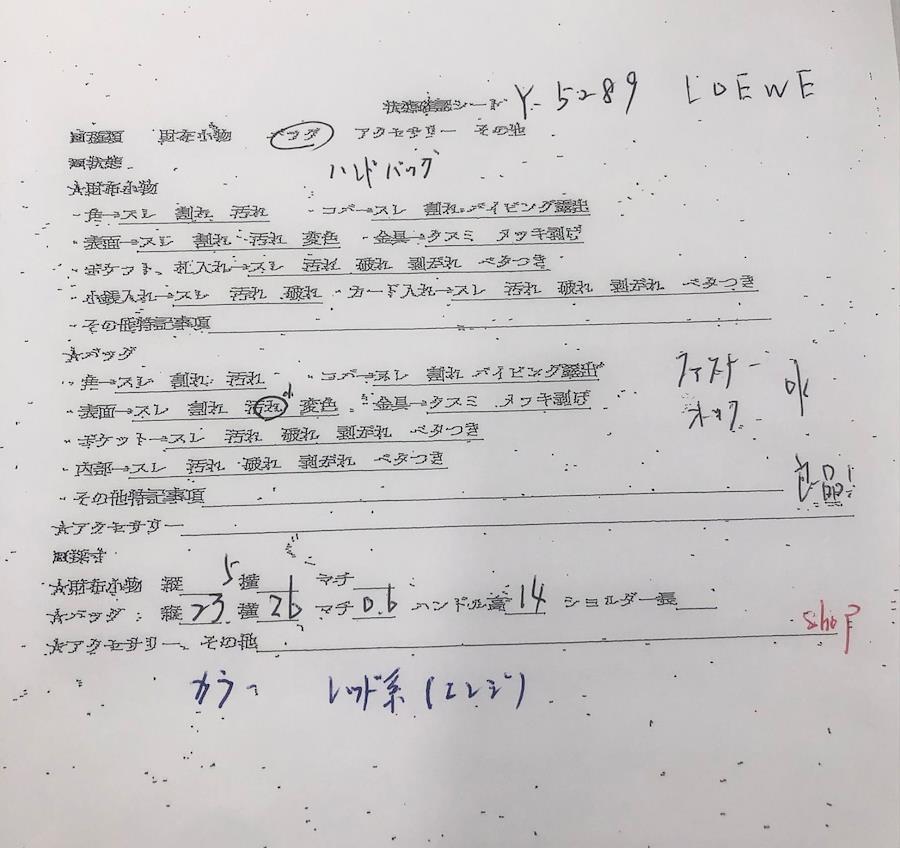 状態確認シート Y-5289 LOEWE
■種類 財布小物 バッグ アクセサリー その他
■状態
ハンドバッグ
★財布小物
・角→スレ 割れ 汚れ ・コバ→スレ 割れ パイピング露出
・表面→スレ 割れ 汚れ 変色 ・金具→クスミ メッキ剥げ
・ポケット、札入れ→スレ 汚れ 破れ 剥がれ ベタつき
・小銭入れ→スレ 汚れ 破れ ・カード入れ→スレ 汚れ 破れ 剥がれ ベタつき
・その他特記事項
★バッグ
・角→スレ 割れ 汚れ ・コバ→スレ 割れ パイピング露出
ファスナー
・表面→スレ 割れ 汚れ 変色 ・金具→クスミ メッキ剥げ
ホック ok
・ポケット→スレ 汚れ 破れ 剥がれ ベタつき
・内部→スレ 汚れ 破れ 剥がれ ベタつき
・その他特記事項
★アクセサリー
■採寸
★財布小物 縦 横 マチ
★バッグ 縦23 横26 マチ0.6 ハンドル高14 ショルダー長
★アクセサリー、その他
shop
カラー レッド系(エンジ)